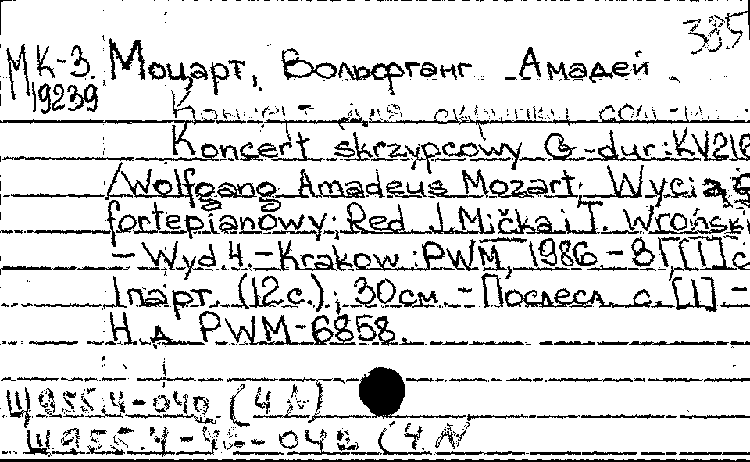 385
МК-3. Моцарт, Вольфганг Амадей
19239
Концерт для скрипки сол-м
Koncert skrzypcowy G-dur: KV216
/Wolfgang Amadeus Mozart; Wyciąg
fortepianowy; Red J. Mička i T. Wroński
- Wyd. 4. - Krakow: PWM, 1986 - 31, [1] с
1 парт. (12 с.); 30 см. - Послесл. с. [1] -
Н. д. PWM-6858.
Щ 955.4-04 (4
Щ 955.4-4 -04 (4